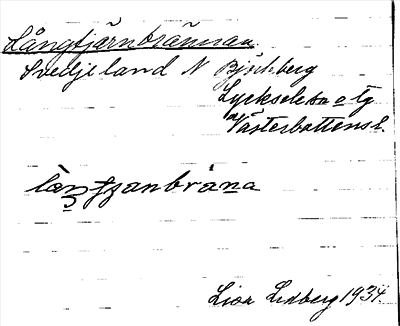 Långtjärnbrännan
Svedjeland N Björkberg
Lycksele so o tg
Västerbottens l.
lån̥gtjanbräna
Lisa Lidberg 1934.